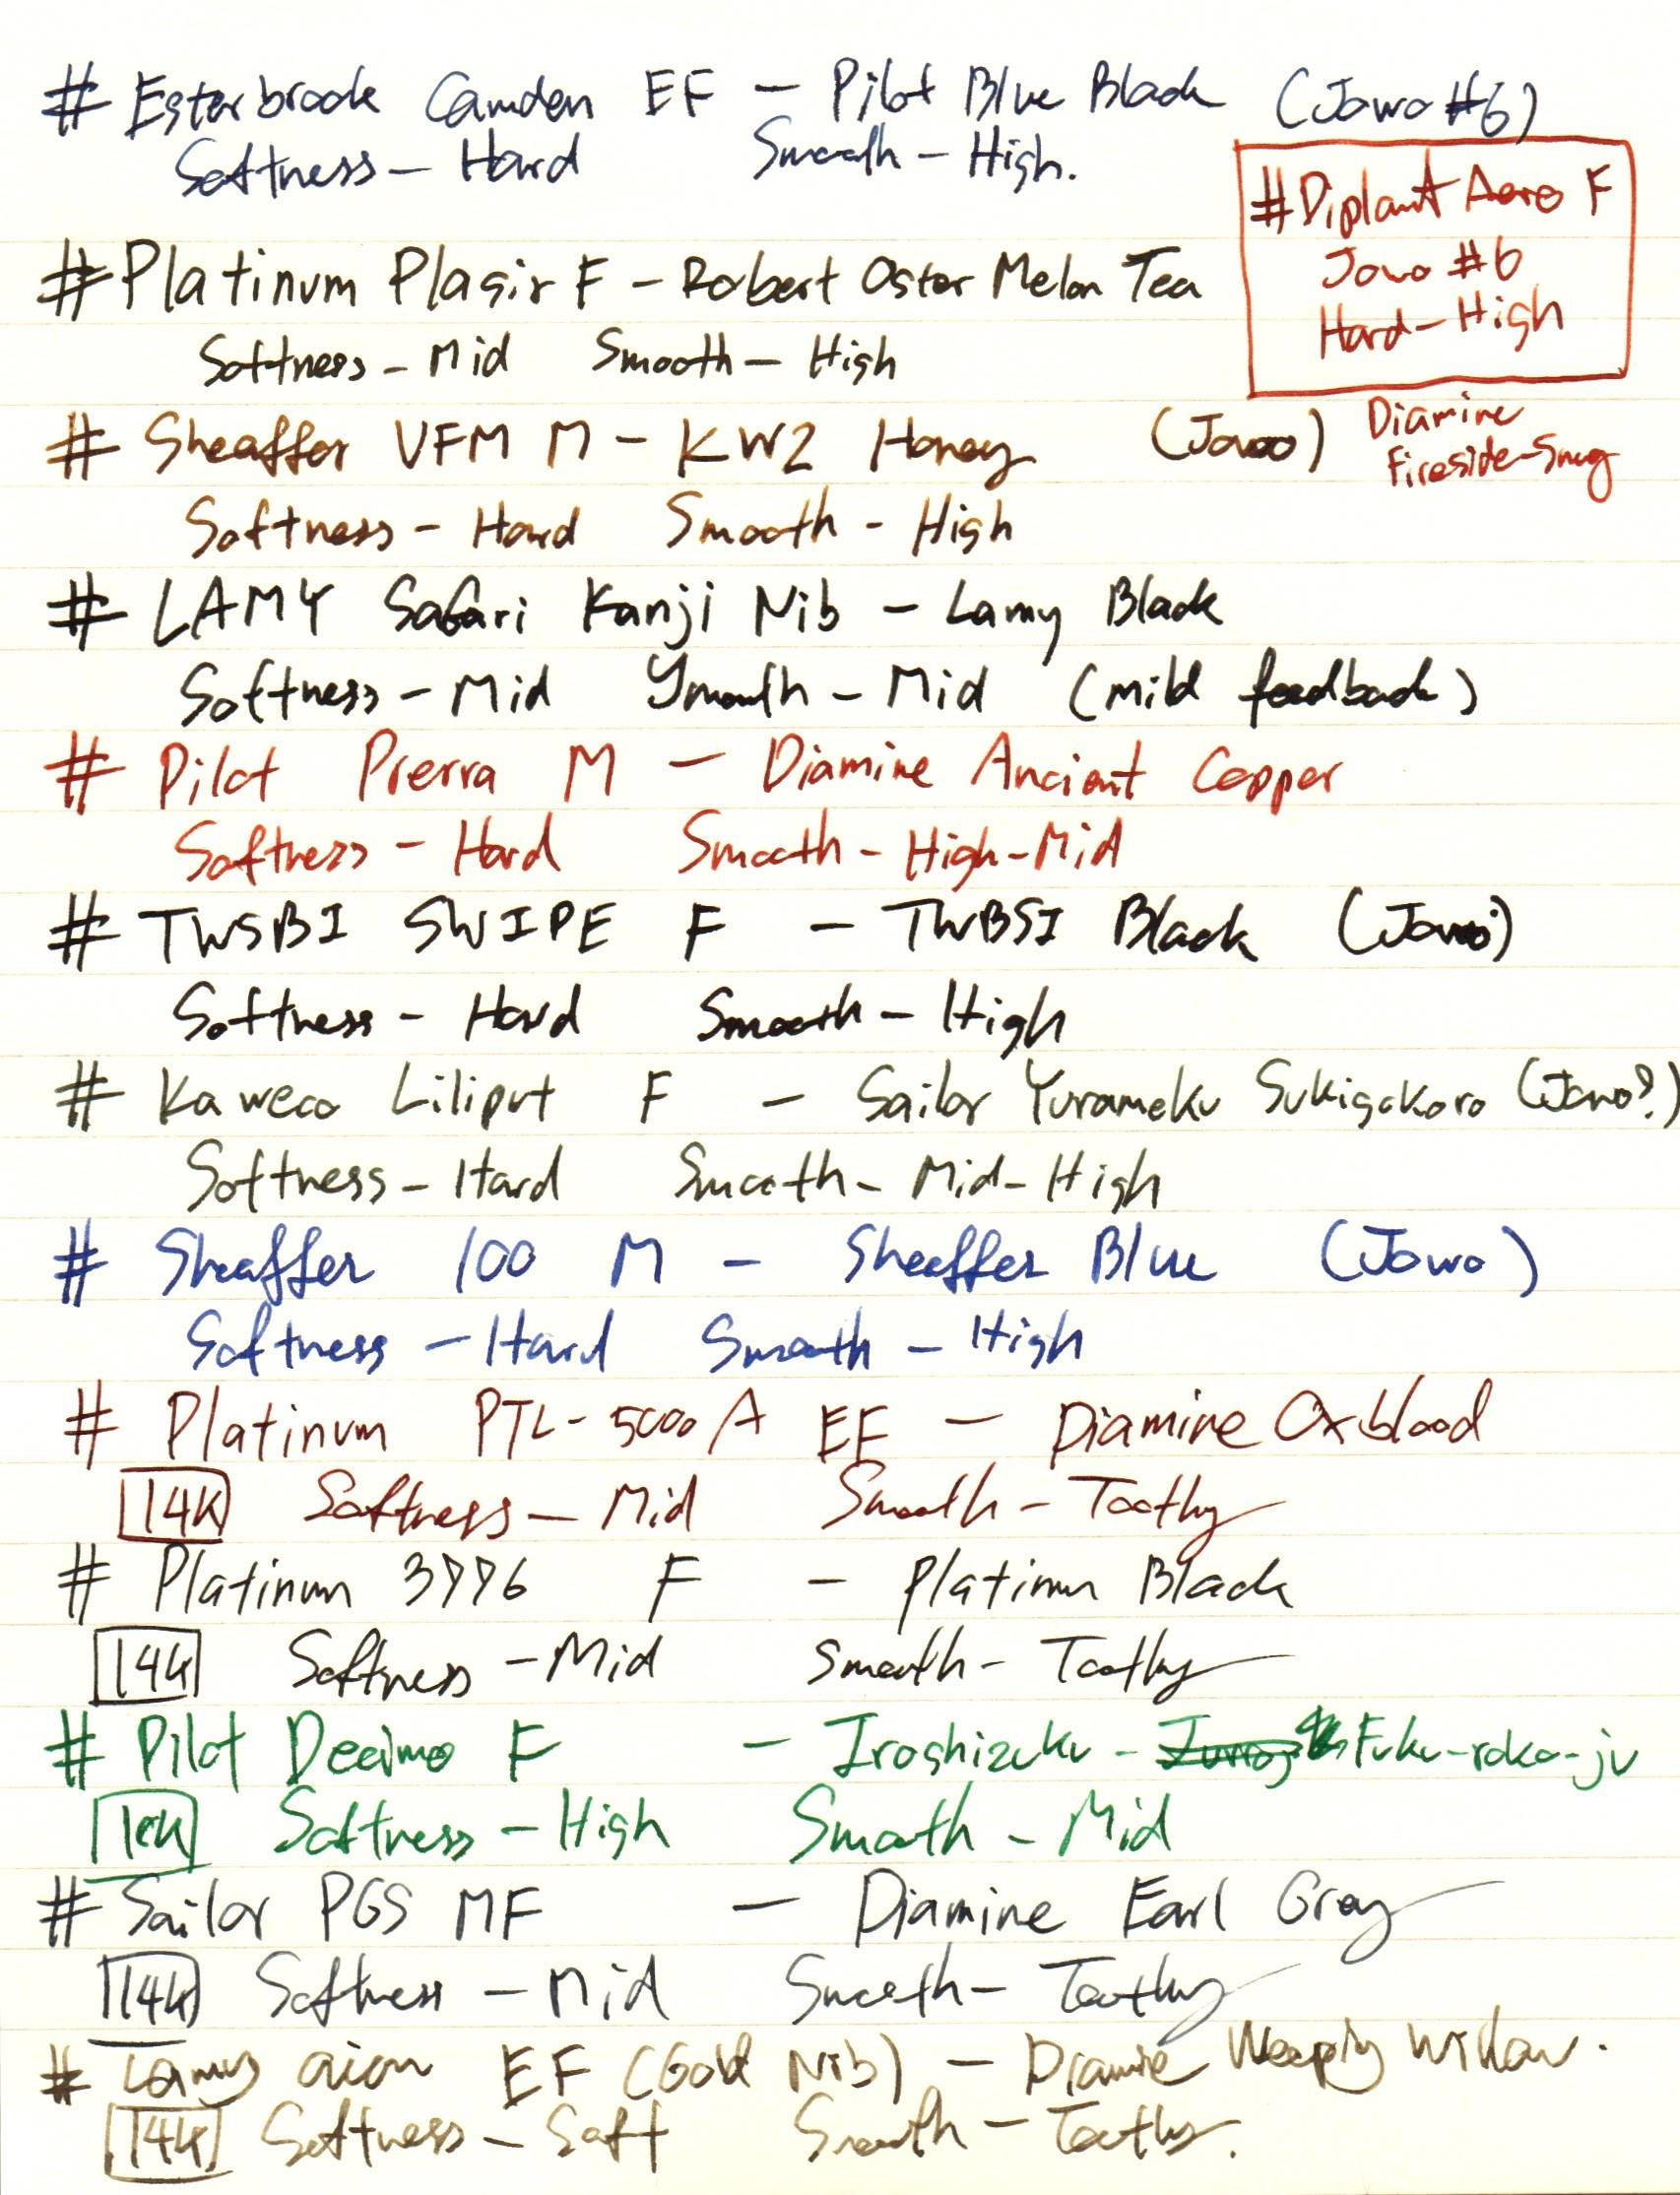 # Esterbrook Camden EF - Pilot Blue Black (Jowo #6)
Softness - Hard Smooth - High.
#Diplomat Aero F
Jowo #6
Hard - High
Diamine
Fireside-Snug
# Platinum Plasir F - Robert Oster Melon Tea
Softness - Mid Smooth - High
# Sheaffer VFM M - KWZ Honey (Jowo)
Softness - Hard Smooth - High
# LAMY Safari Kanji Nib - Lamy Black
Softness - Mid Smooth - Mid (mild feedback)
# Pilot Prerra M - Diamine Ancient Copper
Softness - Hard Smooth - High-Mid
# TWSBI SWIPE F - TWBSI Black (Jowo)
Softness - Hard Smooth - High
# Kaweco Liliput F - Sailor Yurameku Sukigokoro (Jowo?)
Softness - Hard Smooth - Mid-High
# Sheaffer 100 M - Sheeffer Blue (Jowo)
Softness - Hard Smooth - High
# Platinum PTL-5000A EF - Diamine Oxblood
14K Softness - Mid Smooth - Toothy
# Platinum 3776 F - Platinum Black
14K Softness - Mid Smooth - Toothy
# Pilot Decimo F - Iroshizuku - Fuku-roko-ju
18K Softness - High Smooth - Mid
# Sailor PGS MF - Diamine Earl Grey
14K Softness - Mid Smooth - Toothy
# Lamy aion EF (Gold Nib) - Diamine Weeply Willow.
14K Softness - Soft Smooth - Toothy.